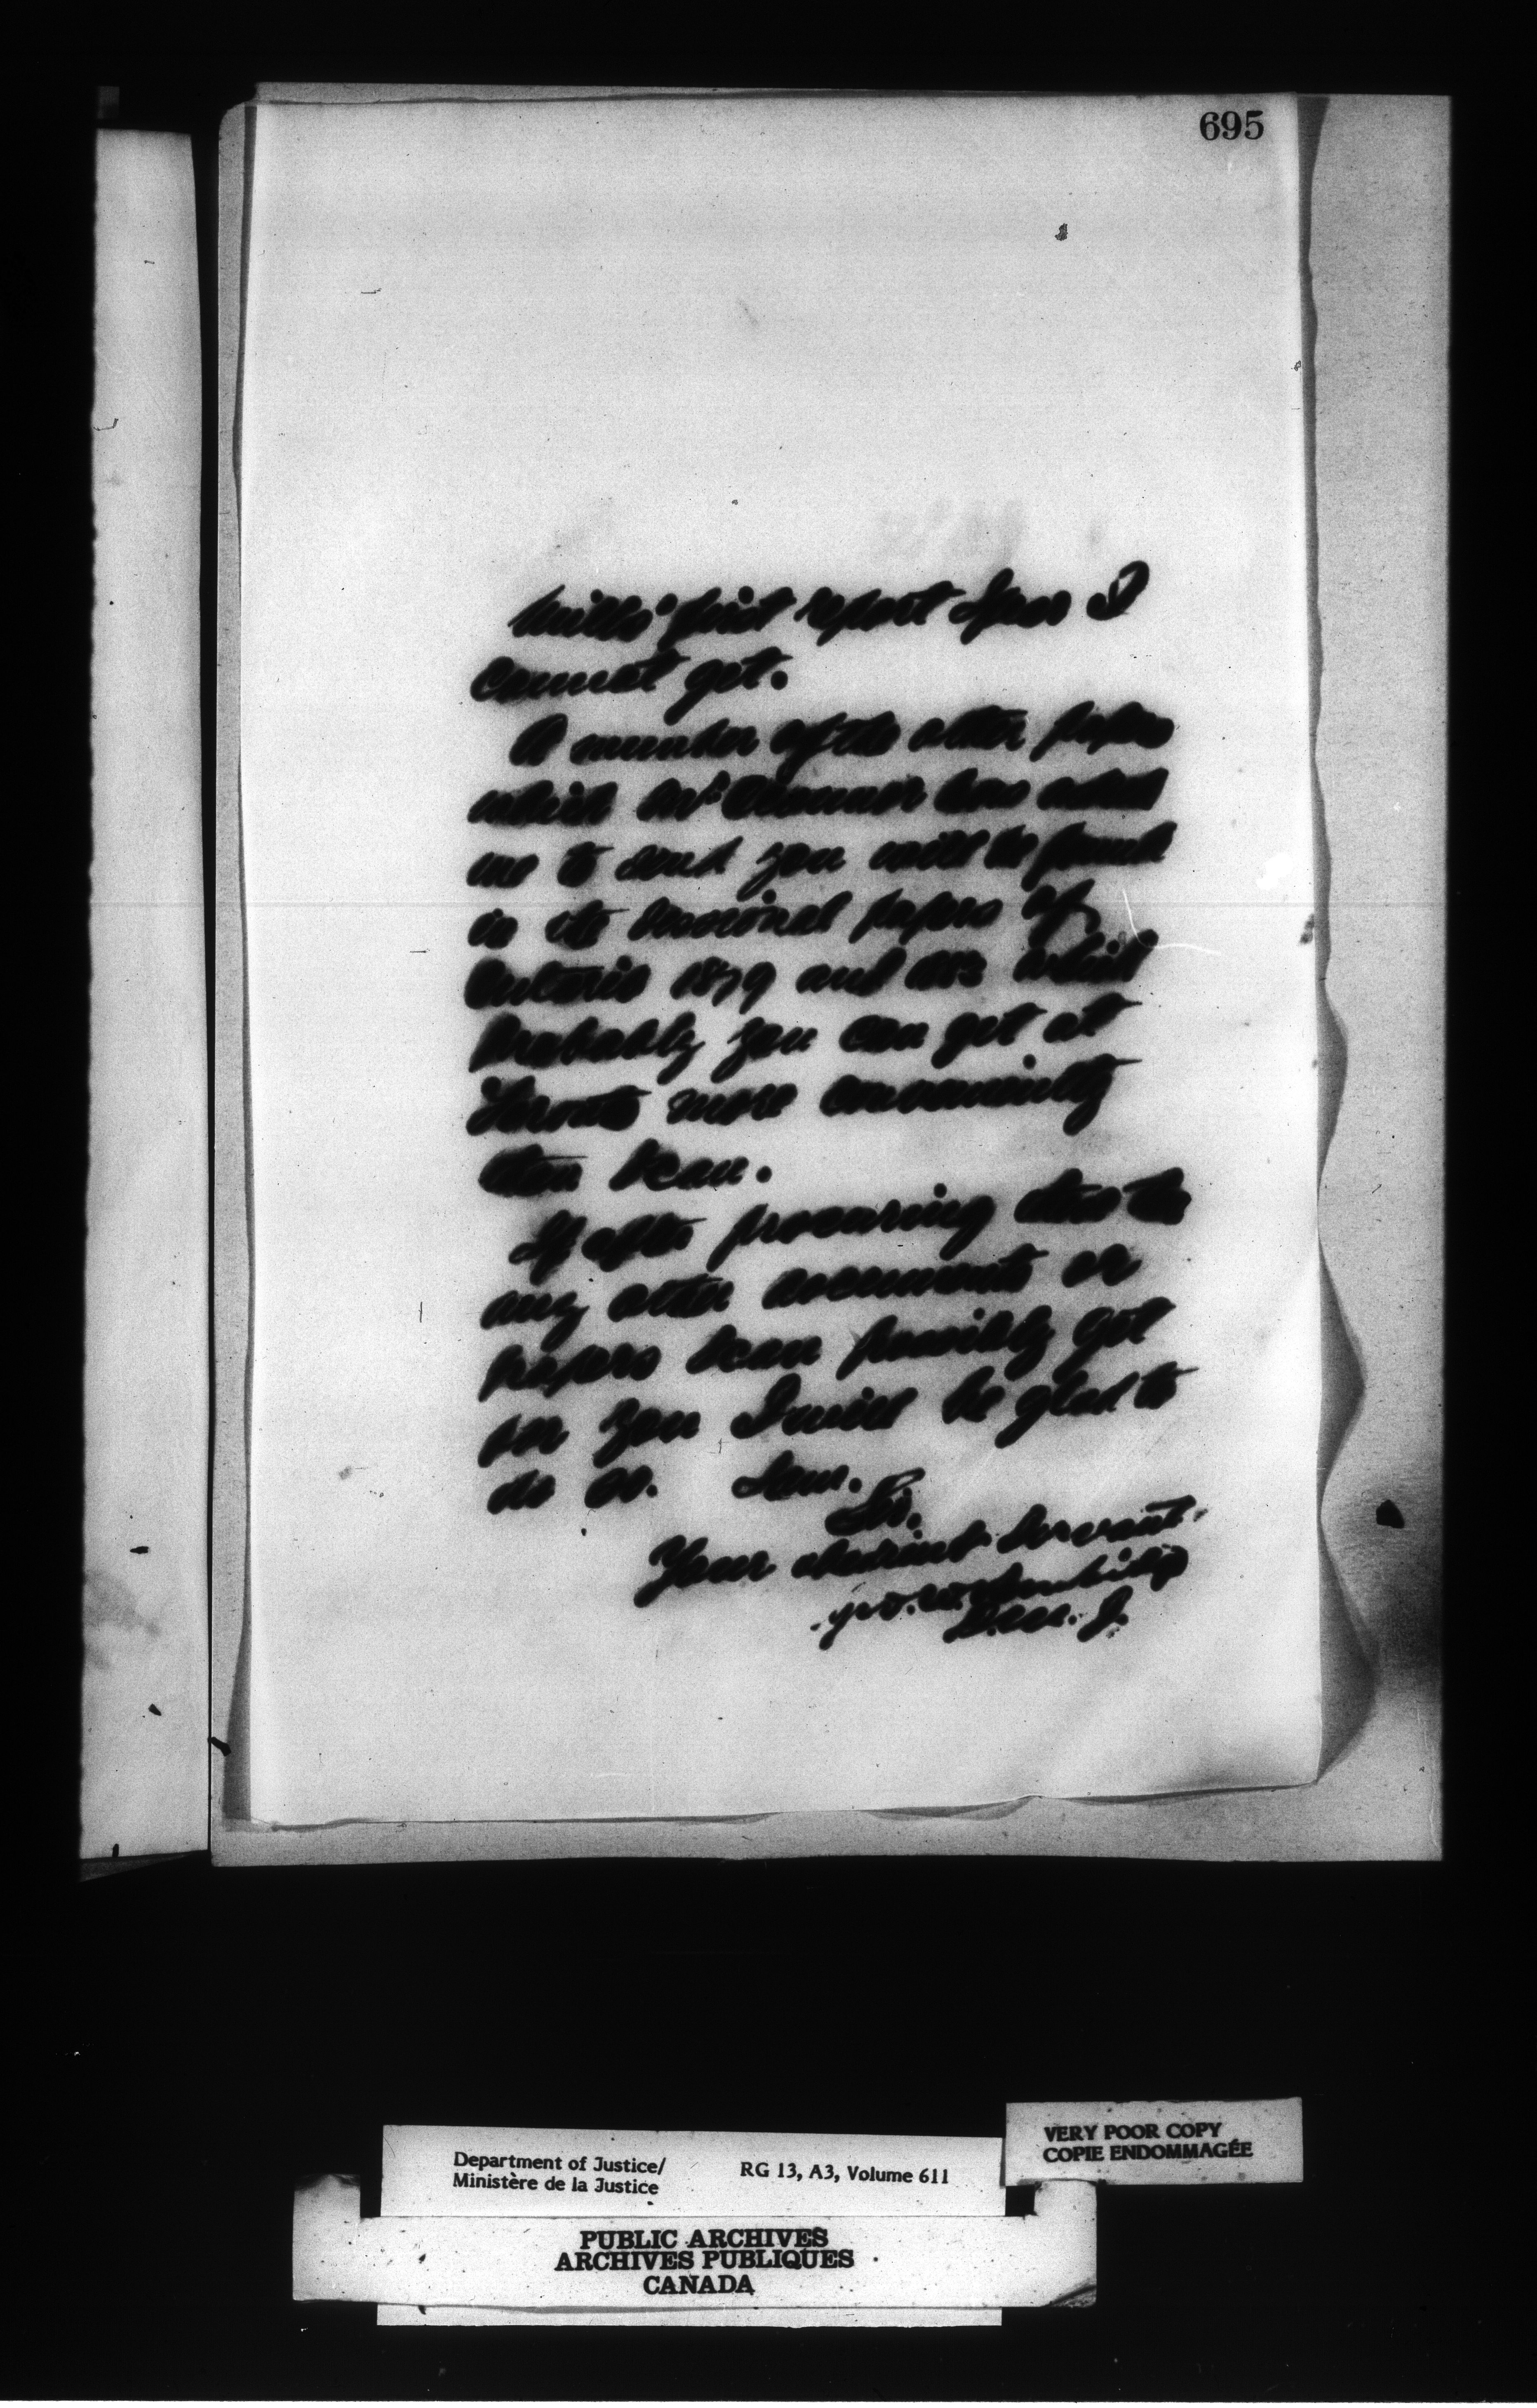 695
Mills' first report I fear I
cannot get.
A number of the other papers
which Mr. O'Connor has asked
me to send you will be found
in the Sessional papers of
Ontario 1879 and 1882 which
probably you can get at
Toronto more conveniently
than I can.
If after procuring these
any other documents or
papers I can possibly get
for you I will be glad to
do so. I am.
Sir.
Your obedient servant.
D.M.J.
Department of Justice/
Ministère de la Justice
RG 13, A3, Volume 611
VERY POOR COPY
COPIE ENDOMMAGÉE
PUBLIC ARCHIVES
ARCHIVES PUBLIQUES
CANADA